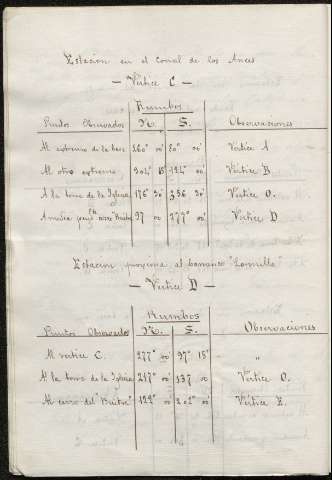 Estacion en el Corral de los Ances
— Vertice C —
Rumbos
Puntos Observados N. S. Observaciones
Al extremo de la base 260° 00' 80° 00' Vertice A
Al otro extremo 304° 15' 124° 00' Vertice B.
A la torre de la Iglesia 176° 30' 356 30' Vertice O.
A media 97 00 277° 00' Vertice D
Estacion proxima al barranco
— Vertice D —
Rumbos
Puntos Observados N. S. Observaciones
Al vertice C. 277° 00' 97° 15' "
A la torre de la Iglesia 217° 00' 137 00 Vertice O.
Al cerro del "Buitre" 122° 00' 302° 00' Vertice E.